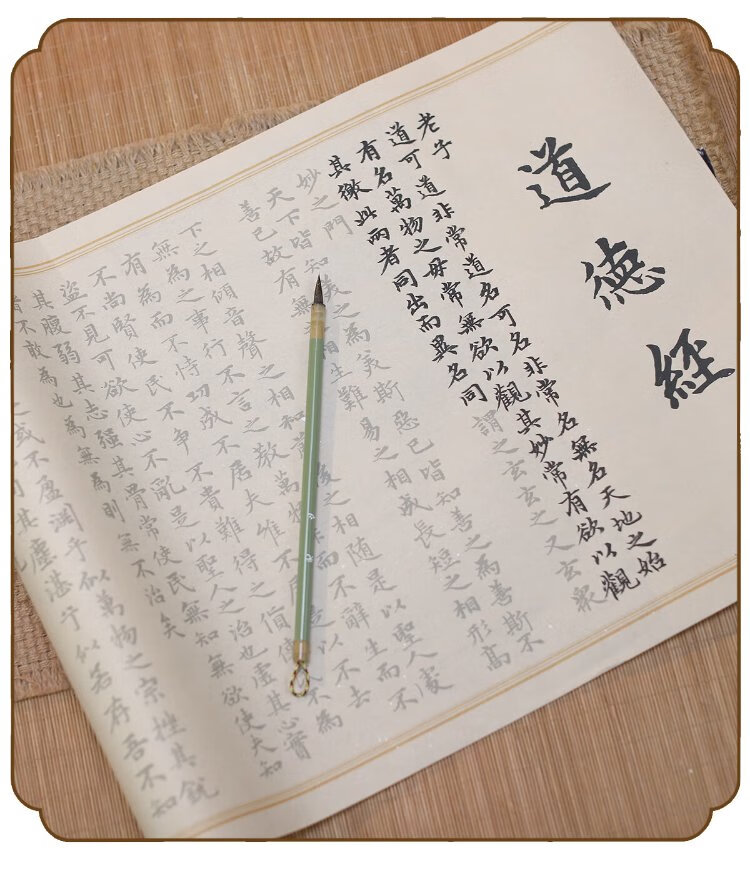 道德經
老子
道可道非常道名可名非常名無名天地之始
有名萬物之母常無欲以觀其妙常有欲以觀
其徼此兩者同出而異名同謂之玄玄之又玄衆
妙之門
天下皆知美之為美斯惡已皆知善之為善斯不
善已故有無之相生難易之相成長短之相形高
下之相傾音聲之相和前後之相隨是以聖人處
無為之事行不言之教萬物而不辭生而不
有為而不恃功成不居夫惟不居是以不去
不尚賢使民不爭不貴難得之貨使不為
盜不見可欲使心不亂是以聖人之治也虛其心實
其腹弱其志强其骨常使民無知無欲使夫知
者不敢為也為無為則無不治矣
之或不盈淵乎似萬物之宗挫其銳
其塵湛乎似若存吾不知